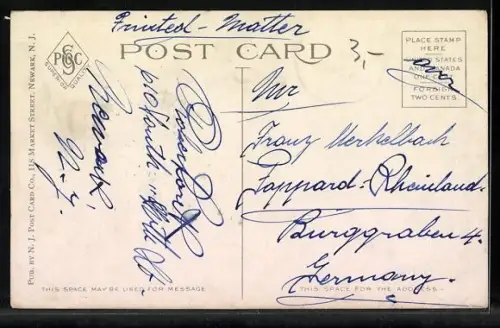 Printed - Matter
PGC
SUPERIOR QUALITY
POST CARD
3,-
PLACE STAMP
HERE
UNITED STATES
AND CANADA
ONE CENT
FOREIGN
TWO CENTS.
PUB. BY N. J. POST CARD CO., 118 MARKET STREET, NEWARK, N. J.
610 South
Newark,
N.J.
Franz Merkelbach
Poppard - Rheinland
Burggraben 4.
Germany.
THIS SPACE MAY BE USED FOR MESSAGE
THIS SPACE FOR THE ADDRESS